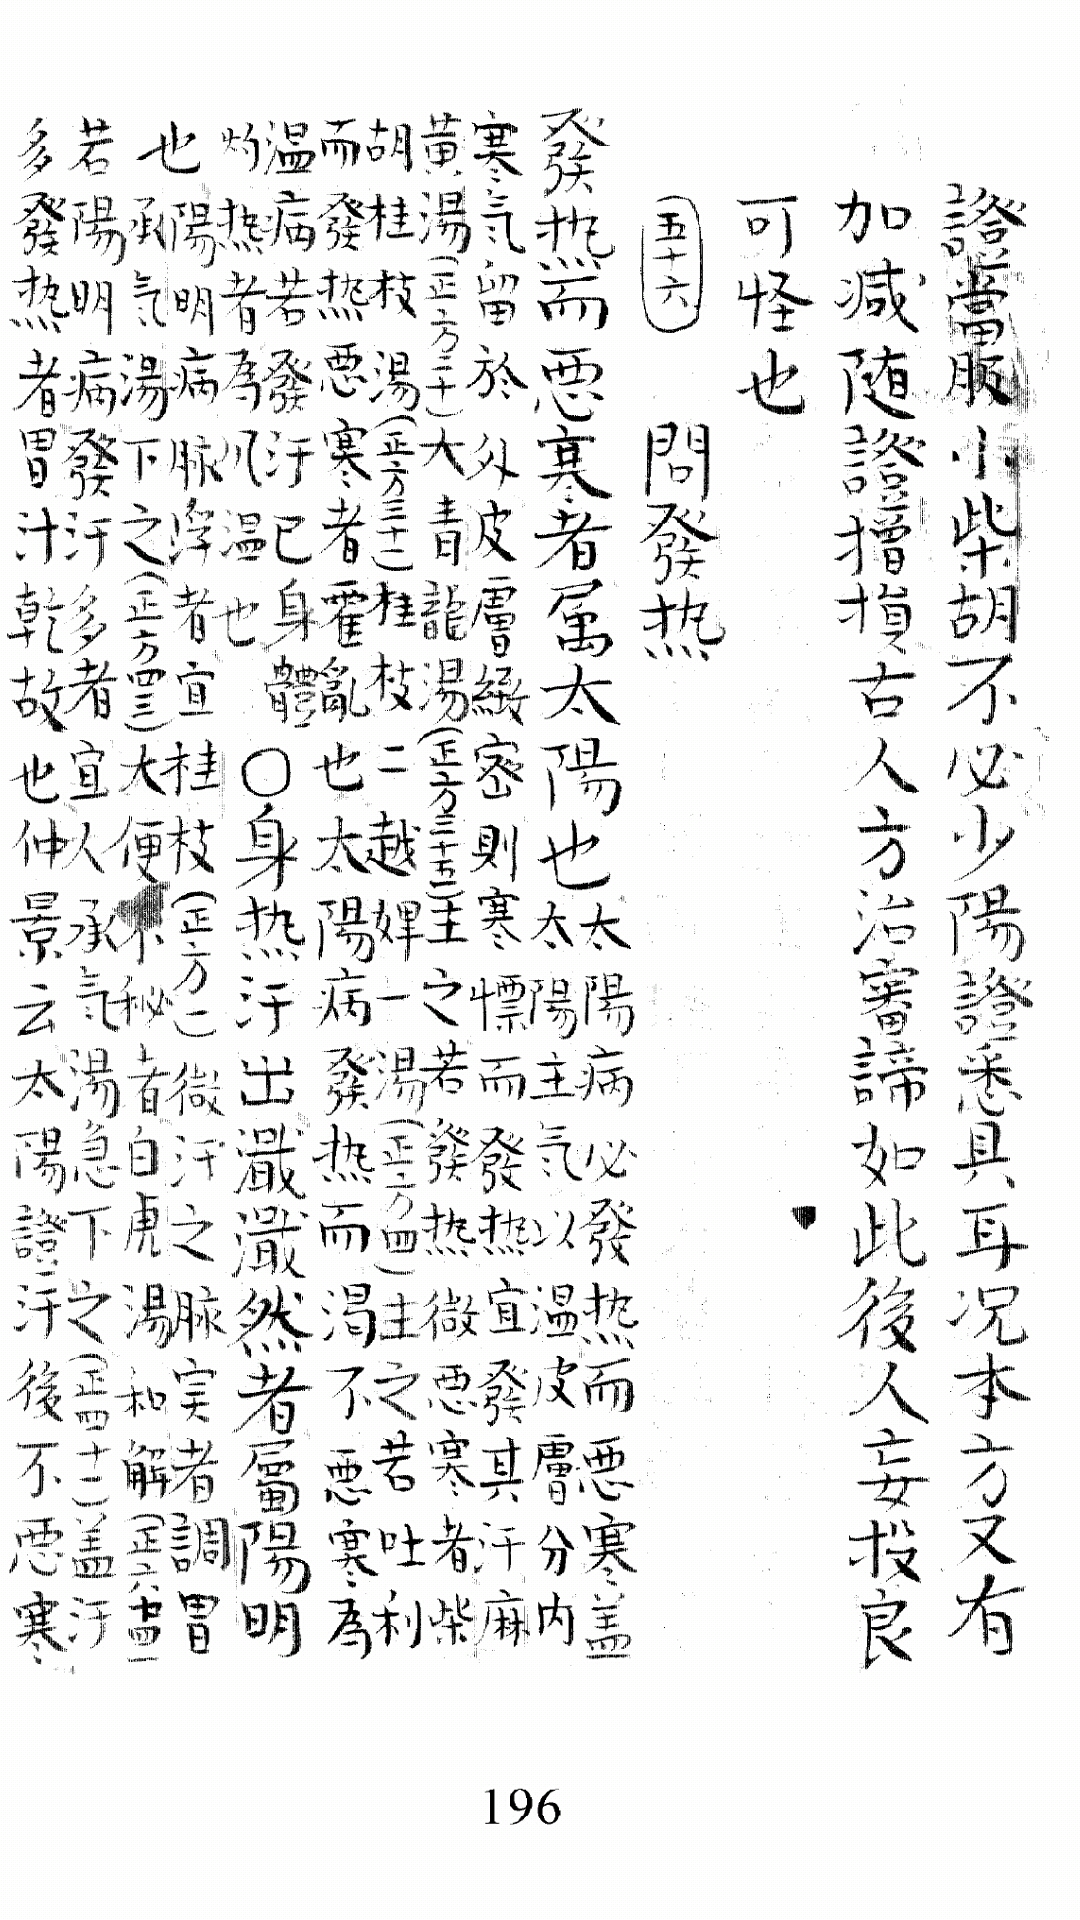 證當服小柴胡不必少陽證悉具耳况本方又有
加减随證增損古人方治審諦如此後人妄投良
可怪也
五十六 問發热
發热而惡寒者属太陽也太陽病必發热而惡寒盖
太陽主氣以温皮膚分内
寒氣留於外皮膚緻密則寒慄而發热宜發其汗麻
黄湯(正方二十)大青龍湯(正方三十五)主之若發热微惡寒者柴
胡桂枝湯(正方三十一)桂枝二越婢一湯(正方四)主之若吐利
而發热惡寒者霍亂也太陽病發热而渴不惡寒為
温病若發汗已身體
灼热者為风温也
〇身热汗出濈濈然者屬陽明
也陽明病脉浮者宜桂枝(正方一)微汗之脉実者調胃
承氣湯下之(正方四三)大便不秘者白虎湯和解(正六
若陽明病發汗多者宜人承氣湯急下之(正四十二)盖汗
多發热者胃汁乾故也仲景云太陽證汗後不惡寒
196